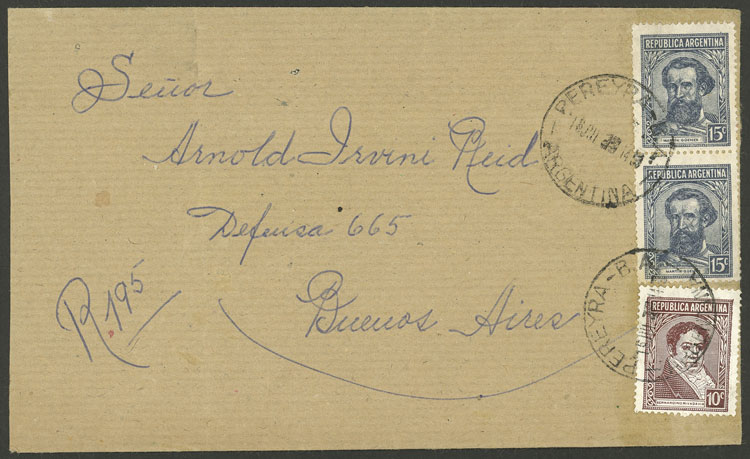 Señor
Arnold Irvini Reid
Defensa 665
Buenos Aires
R.195
REPUBLICA ARGENTINA
MARTIN GÜEMES
15c
REPUBLICA ARGENTINA
MARTIN GÜEMES
15c
REPUBLICA ARGENTINA
BERNARDINO RIVADAVIA
10c
PEREYRA
ARGENTINA
PEREYRA-B.A.